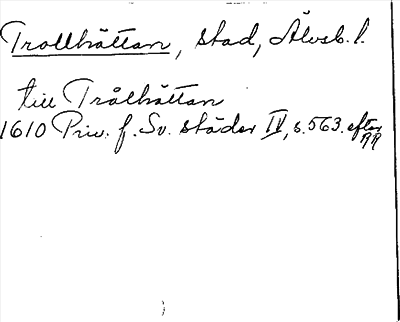 Trollhättan, stad, Älvsb. l.
till Trålhättan
1610 Priv. f. Sv. städer IV, s. 563. efter RR